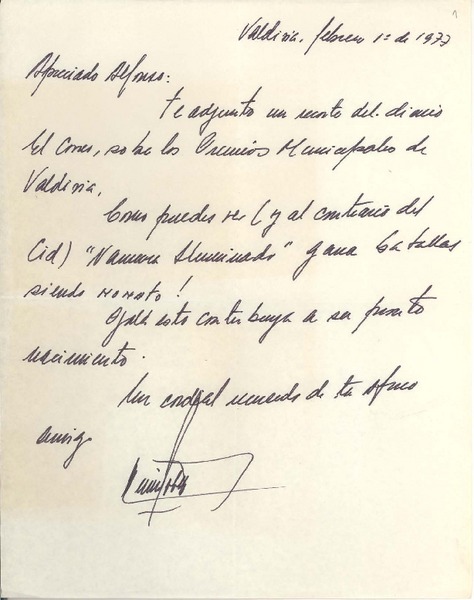 1
Valdivia, febrero 1º de 1977
Apreciado Alfonso:
Te adjunto un recorte del diario
El Correo, sobre los Premios Municipales de
Valdivia.
Como puedes ver (y al contrario del
Cid) "Namura Iluminado" gana batallas
siendo nonato!
Ojalá esto contribuya a su pronto
nacimiento.
Un cordial recuerdo de tu afmo
amigo